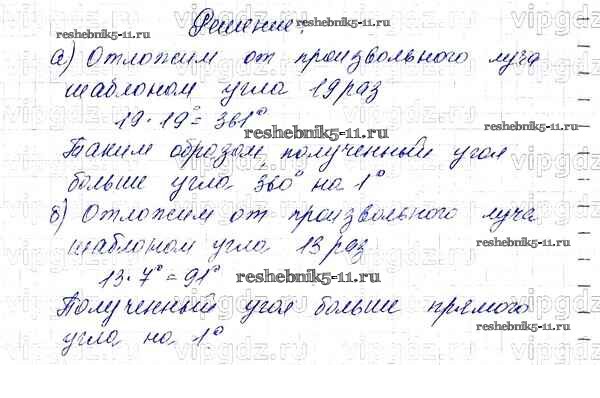 Решение:
reshebnik5-11.ru
а) Отложим от произвольного луча
шаблоном угла 19 раз
19·19°= 361°
reshebnik5-11.ru
Таким образом, полученный угол
больше угла 360° на 1°
б) Отложим от произвольного луча
шаблоном угла 13 раз
13·7°=91°
reshebnik5-11.ru
Полученный угол больше прямого
угла на 1°.
reshebnik5-11.ru